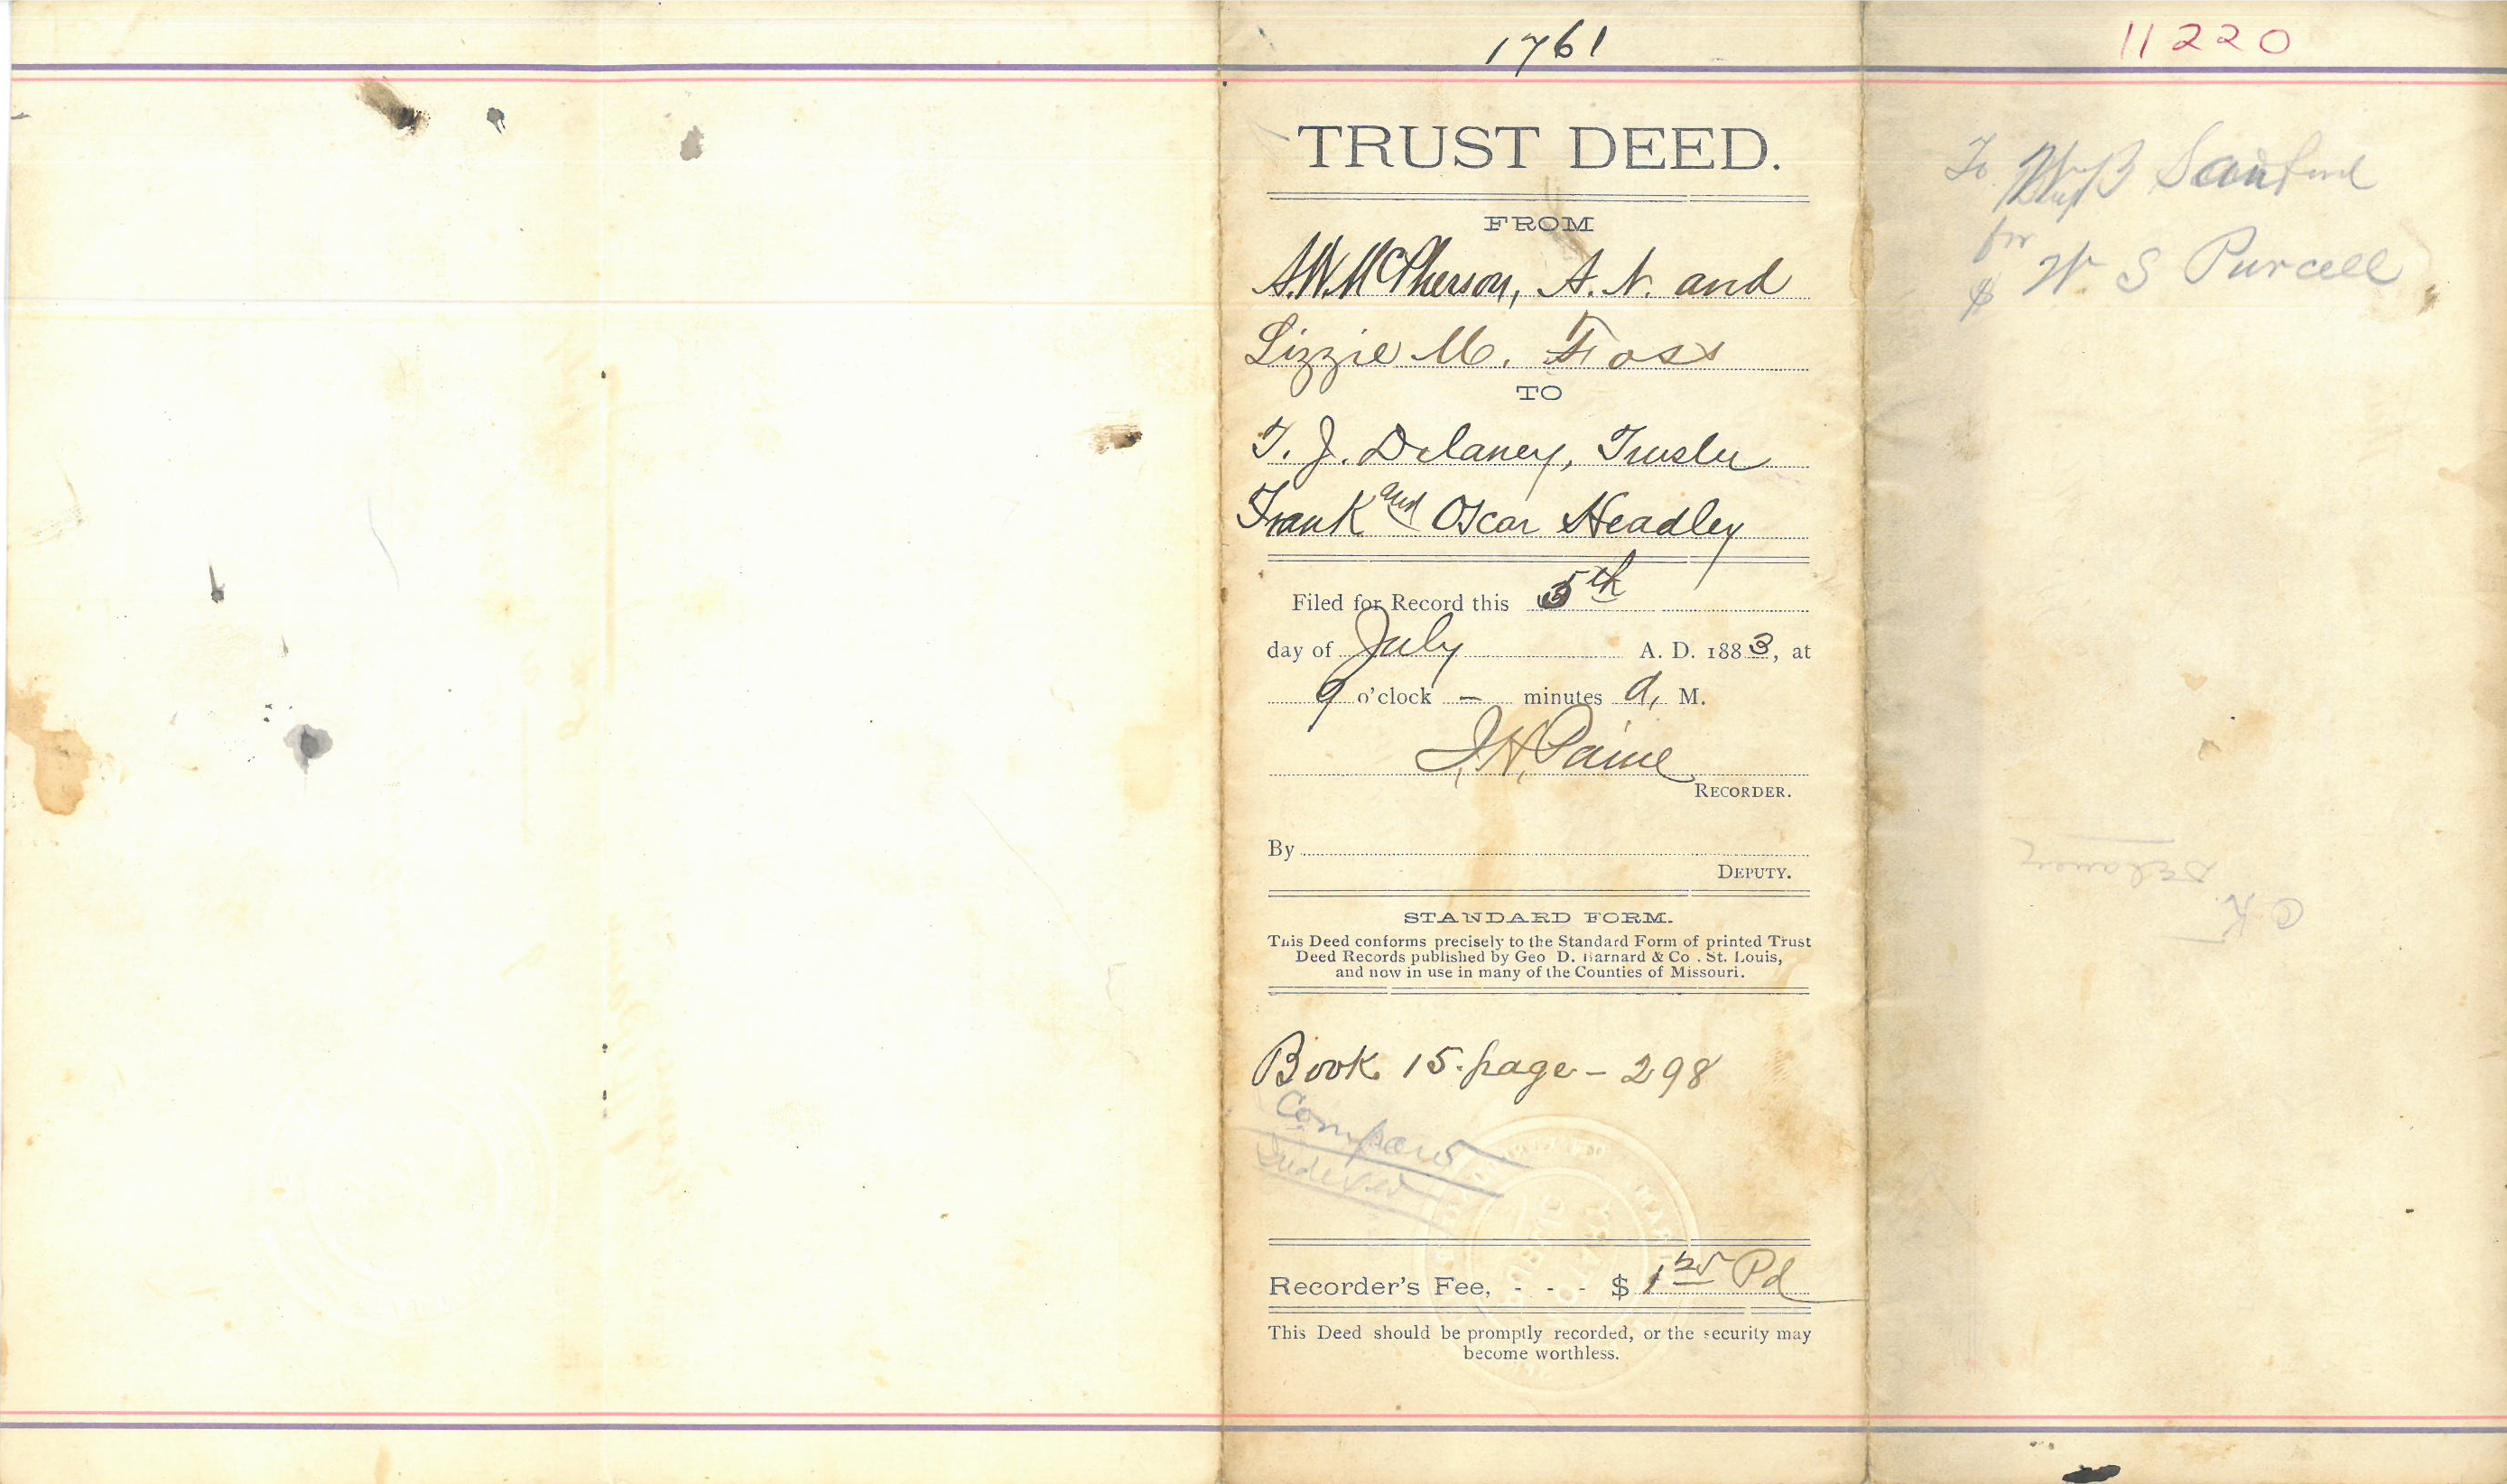 1761
TRUST DEED.
FROM
A. W. McPherson, A. N. and
Lizzie M. Foss
TO
T. J. Delaney, Trustee
Frank and Oscar Headley
Filed for Record this 5th
day of July A. D. 1883, at
9 o'clock — minutes A, M.
J. H. Paine
RECORDER.
By
DEPUTY.
STANDARD FORM.
This Deed conforms precisely to the Standard Form of printed Trust
Deed Records published by Geo D. Barnard & Co. St. Louis,
and now in use in many of the Counties of Missouri.
Book 15. page - 298
Compared
Indexed
PUBLIC
Recorder's Fee, - - - $ 1 25 Pd
This Deed should be promptly recorded, or the security may
become worthless.
11220
To Wm B Sanford
for
$ W S Purcell
C K
Delaney